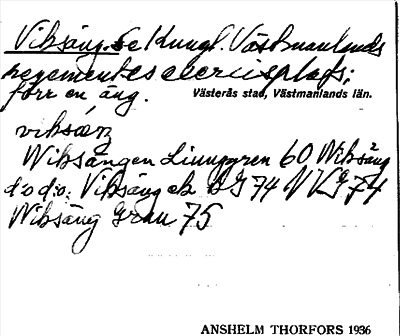 Viksäng. Se Kungl. Västmanlands
regementes exercisplats;
förr en äng.
Västerås stad, Västmanlands län.
viksäŋ
Wiksängen Liunggren 60 Wiksäng
d:o d:o. Viksäng ek 74 74
Wiksäng Grau 75
ANSHELM THORFORS 1936